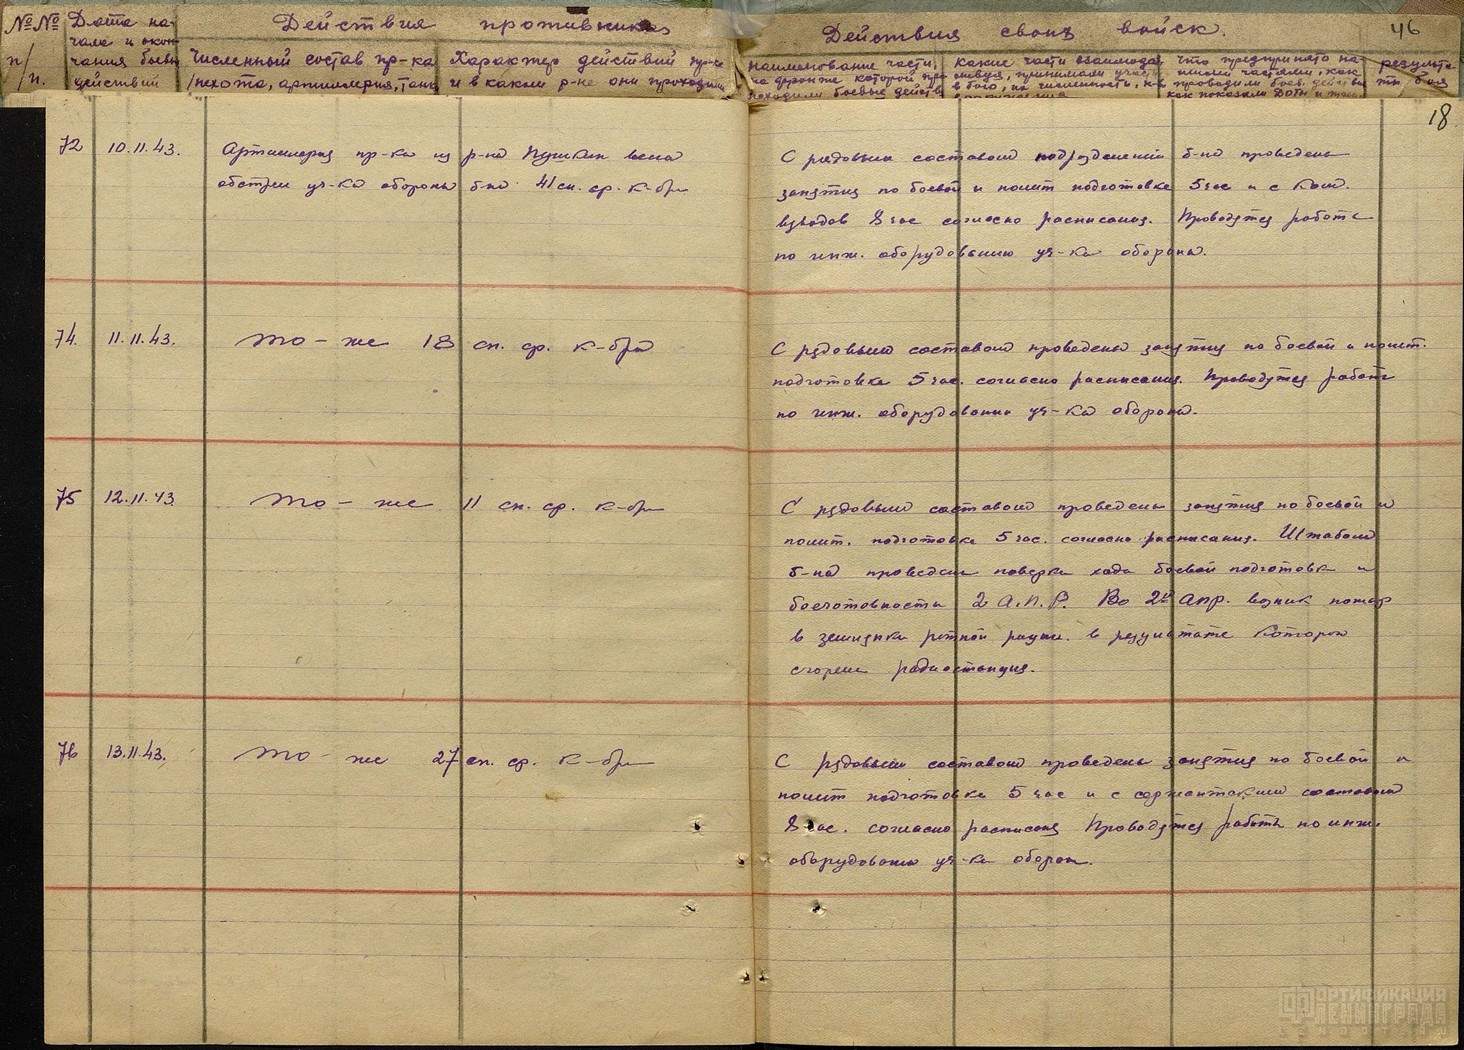 №№ п/п.
Дата на-
чала и окон-
чания боевы
действий
Действия противника
Численный состав пр-ка
/пехота, артиллерия, танк
Характер действий пр-ка
и в каком р-не они проходили
Действия своих войск.
46
наименование части,
на фронте которой про-
ходили боевые действ
какие части взаимодей
ствуя, принимали участ
в бою, их численность, к-в
что предпринято на-
шими частями, как
проводили боев. действи
как показали ДОТы и
результа-
ты боя
18
72 10.11.43. Артиллерия пр-ка из р-на Пушкин вела
обстрел уч-ка обороны б-на 41 сн. ср. к-бра
С рядовым составом подразделений б-на проведены
занятия по боевой и полит подготовке 5 час и с ком.
взводов 8 час согласно расписания. Проводятся работы
по инж. оборудованию уч-ка обороны.
74. 11.11.43. то-же 18 сн. ср. к-бра
С рядовым составом проведены занятия по боевой и полит.
подготовке 5 час. согласно расписания. Проводятся работы
по инж. оборудованию уч-ка обороны.
75 12.11.43 то-же 11 сн. ср. к-бра
С рядовым составом проведены занятия по боевой и
полит. подготовке 5 час. согласно расписания. Штабом
б-на проведена поверка хода боевой подготовки и
боеготовности 2 А.П.Р. Во 2й апр. возник пожар
в землянке ротной рации. в результате которого
сгорела радиостанция.
76 13.11.43. то-же 27 сн. ср. к-бра
С рядовым составом проведены занятия по боевой и
полит подготовке 5 час и с сержантским составом
8 час. согласно расписания Проводятся работы по инж.
оборудованию уч-ка обороны.
ФОРТИФИКАЦИЯ
ЛЕНИНГРАДА